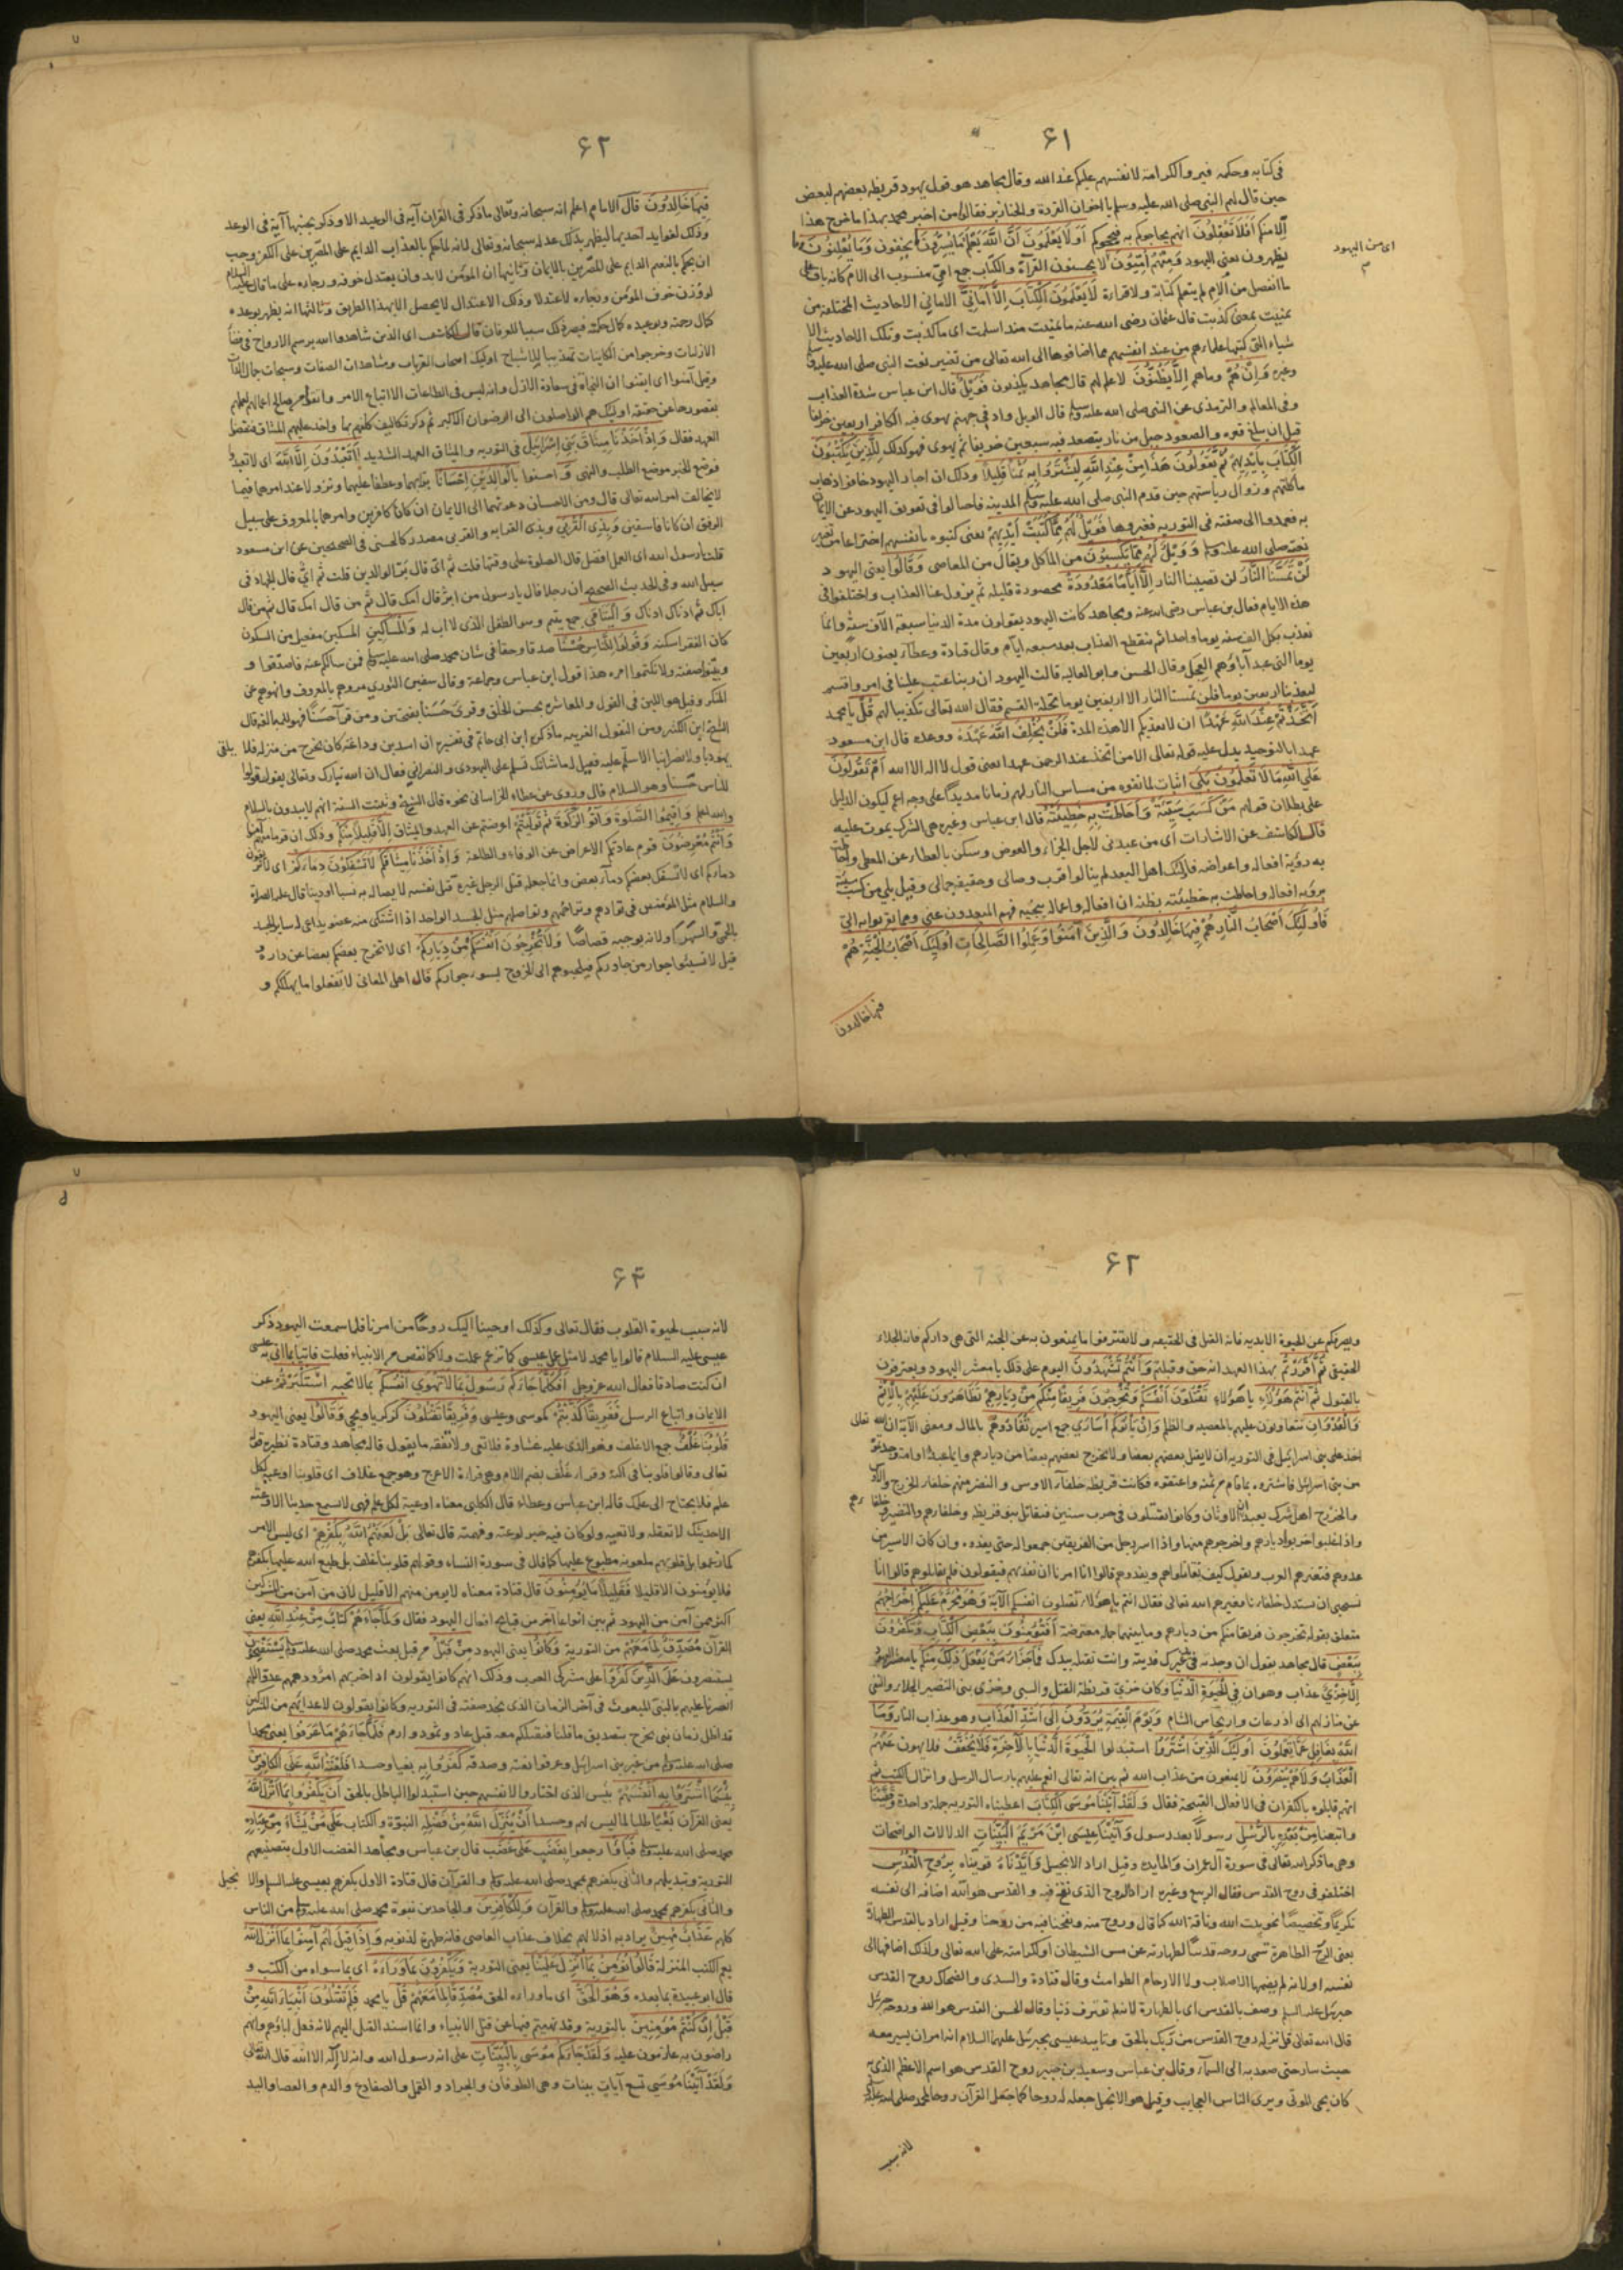 ۶۱
فى كتابه وحكمه فيروا الكرامة لانفسهم عليكم عند الله وقال مجاهد هو قول يهود قريظة بعضهم لبعض
حين قال لهم النبى صلى الله عليه وسلم يا اخوان القردة والخنازير فقالوا من اخبر محمد بهذا ما خرج هذا
الا منكم أَفَلَا تَعْقِلُونَ انهم يحاجوكم به فيحجوكم أَوَلَا يَعْلَمُونَ أَنَّ اللَّهَ يَعْلَمُ مَا يُسِرُّونَ يخفون وَمَا يُعْلِنُونَ
يظهرون يعنى اليهود وَمِنْهُمْ أُمِّيُّونَ لا يحسنون القراة والكتاب جمع امى منسوب الى الام كانه باق على
ما انفصل من الام لم يتعلم كتابة ولا قراءة لَا يَعْلَمُونَ الْكِتَابَ إِلَّا أَمَانِيَّ الامانى الاحاديث المختلقة من
تمنيت بمعنى كذبت قال عثمان رضى الله عنه ما تمنيت منذ اسلمت اى ما كذبت وتلك الاحاديث الا
شياء التى كتبها علماءهم من عند انفسهم مما اضافوها الى الله تعالى من تغيير نعت النبى صلى الله عليه وسلم
وغيره وَإِنْ هُمْ وما هم إِلَّا يَظُنُّونَ لا علم لهم قال مجاهد يكذبون فَوَيْلٌ قال ابن عباس شدة العذاب
وفى المعالم والترمذى عن النبى صلى الله عليه وسلم قال الويل واد فى جهنم يهوى فيه الكافر اربعين خريفا
قبل ان يبلغ قعره والصعود جبل من نار يتصعد فيه سبعين خريفا ثم يهوى فهو كذلك لِلَّذِينَ يَكْتُبُونَ
الْكِتَابَ بِأَيْدِيهِمْ ثُمَّ يَقُولُونَ هَذَا مِنْ عِنْدِ اللَّهِ لِيَشْتَرُوا بِهِ ثَمَنًا قَلِيلًا وذلك ان احبار اليهود خافوا ذهاب
ماكلتهم وزوال رياستهم حين قدم النبى صلى الله عليه وسلم المدينه فاحتالوا فى تعويق اليهود عن الايمان
به فعمدوا الى صفته فى التوريه فغيروها فَوَيْلٌ لَهُمْ مِمَّا كَتَبَتْ أَيْدِيهِمْ يعنى كتبوه بانفسهم اختراعا من تغيير
نعته صلى الله عليه وسلم وَوَيْلٌ لَهُمْ مِمَّا يَكْسِبُونَ من المآكل ويقال من المعاصى وَقَالُوا يعنى اليهود
لَنْ تَمَسَّنَا النَّارُ لن تصيبنا النار إِلَّا أَيَّامًا مَعْدُودَةً محصورة قليله ثم يزول عنا العذاب واختلفوا فى
هذه الايام فقال بن عباس رضى الله عنه ومجاهد كانت اليهود يقولون مدة الدنيا سبعة الآف سنة وانما
نعذب بكل الف سنه يوما واحدا ثم ينقطع العذاب بعد سبعه ايام وقال قتادة وعطاء يعنون اربعين
يوما التى عبد آباؤهم العجل وقال الحسن وابو العاليه قالت اليهود ان ربنا عتب علينا فى امر واقسم
ليعذبنا اربعين يوما فلن تمسنا النار الا اربعين يوما تحلة القسم فقال الله تعالى تكذيبا لهم قُلْ يا محمد
أَتَّخَذْتُمْ عِنْدَ اللَّهِ عَهْدًا ان لا يعذبكم الا هذه المدة فَلَنْ يُخْلِفَ اللَّهُ عَهْدَهُ ووعده قال ابن مسعود
عهدا بالتوحيد يدل عليه قوله تعالى الا من اتخذ عند الرحمن عهدا يعنى قول لا اله الا الله أَمْ تَقُولُونَ
عَلَى اللَّهِ مَا لَا تَعْلَمُونَ بَلَى اثبات لما نفوه من مساس النار لهم زمانا مديدا على وجه اعم ليكون الدليل
على بطلان قولهم مَنْ كَسَبَ سَيِّئَةً وَأَحَاطَتْ بِهِ خَطِيئَتُهُ قال ابن عباس وغيره هى الشرك يموت عليه
قال الكاشف عن الاشارات اى من عبدنى لاجل الجزاء والعوض وسكن بالعطاء عن المعطى واحاطت
به رؤية افعاله واعواضه فاولئك اهل البعد لم ينالوا قرب وصالى وحقيقه جمالى وقيل بلى من كسب سيئة
برؤية افعاله واحاطت به خطيئته بظنه ان افعاله واعماله ينجيه فهم المبعدون عنى وعما يقربوا به الى
فَأُولَئِكَ أَصْحَابُ النَّارِ هُمْ فِيهَا خَالِدُونَ وَالَّذِينَ آمَنُوا وَعَمِلُوا الصَّالِحَاتِ أُولَئِكَ أَصْحَابُ الْجَنَّةِ هُمْ
فيها خالدون
اى من اليهود
۶۲
فِيهَا خَالِدُونَ قال الامام اعلم انه سبحانه وتعالى ما ذكر فى القران آية فى الوعيد الا وذكر بجنبها آية فى الوعد
وذلك لفوايد احديها ليظهر بذلك عدله سبحانه وتعالى لانه لما حكم بالعذاب الدايم على المصرين على الكفر وجب
ان يحكم بالنعم الدايم على المصرين بالايمان وثانيها ان المؤمن لابد وان يعتدل خوفه ورجاءه على ما قال عليه السلام
لو وزن خوف المؤمن ورجاءه لاعتدلا وذلك الاعتدال لا يحصل الا بهذا الطريق وثالثها انه يظهر بوعده
كمال رحمته وبوعيده كمال حكمته فيصير ذلك سببا للعرفان قال الكاشف اى الذين شاهدوا الله برسم الارواح فى فضاء
الازليات وخرجوا من الكاينات تهذيبا للاشباح اوليك اصحاب القربات ومشاهدات الصفات وسبحات جمال الذات
وقيل آمنوا اى ايقنوا ان النجاة فى سعادة الازل وانه ليس فى الطاعات الا اتباع الامر
العهد فقال وَإِذْ أَخَذْنَا مِيثَاقَ بَنِي إِسْرَائِيلَ فى التوريه والميثاق العهد الشديد لَا تَعْبُدُونَ إِلَّا اللَّهَ اى لا تعبدوا
فوضع الخبر موضع الطلب والنهى وَ احسنوا بِالْوَالِدَيْنِ إِحْسَانًا برا بهما وعطفا عليهما ونزولا عند امرهما فيما
لا يخالف امر الله تعالى قال ومن الاحسان دعوتهما الى الايمان ان كانا كافرين وامرهما بالمعروف على سبيل
الرفق ان كانا فاسقين وَبِذِي الْقُرْبَى وبذى القرابه والقربى مصدر كالحسنى فى الصحيحين عن ابن مسعود
قلت يا رسول الله اى العمل افضل قال الصلوة على وقتها قلت ثم اى قال بر الوالدين قلت ثم اى قال الجهاد فى
سبيل الله وفى الحديث الصحيح ان رجلا قال يا رسول من ابر قال امك قال ثم من قال امك قال ثم من قال
اباك ثم ادناك ادناك وَالْيَتَامَى جمع يتيم وهو الطفل الذى لا اب له وَالْمَسَاكِينِ المسكين مفعيل من السكون
كان الفقر اسكنه وَقُولُوا لِلنَّاسِ حُسْنًا صدقا وحقا فى شان محمد صلى الله عليه وسلم فمن سالكم عنه فاصدقوا و
وبينوا صفته ولا تكتموا امره هذا قول ابن عباس وجماعة وقال سفين الثورى مروهم بالمعروف وانهوهم عن
المنكر وقيل هو اللين فى القول والمعاشرة بحسن الخلق وقرى حسنا بفتحتين ومن قرأ حسنا فهو للمبالغه قال
الشيخ ابن الكثير ومن النقول الغريبه ما ذكره ابن ابى حاتم فى تفسيره ان اسد بن وداعة كان يخرج من منزله فلا يلقى
يهوديا ولا نصرانيا الا سلم عليه فقيل له ما شانك تسلم على اليهودى والنصرانى فقال ان الله تبارك وتعالى يقول قولوا
للناس حسنا وهو السلام قال وروى عن عطاء الخراسانى نحوه قال الشيخ وثبتت السنة انهم لا يبدون بالسلام
والله اعلم وَأَقِيمُوا الصَّلَوةَ وَآتُوا الزَّكَوةَ ثُمَّ تَوَلَّيْتُمْ اعرضتم عن العهد والميثاق إِلَّا قَلِيلًا مِنْكُمْ وذلك ان قوما منهم آمنوا
وَأَنْتُمْ مُعْرِضُونَ قوم عادتكم الاعراض عن الوفاء والطاعة وَإِذْ أَخَذْنَا مِيثَاقَكُمْ لَا تَسْفِكُونَ دِمَاءَكُمْ اى لا تريقون
دماءكم اى لا تسفك بعضكم دماء بعض وانما جعل قتل الرجل غيره قتل نفسه لاتصاله به نسبا او دينا قال عليه الصلوة
والسلام مثل المؤمنين فى توادهم وتراحمهم وتواصلهم مثل الجسد الواحد اذا اشتكى منه عضو تداعى له ساير الجسد
بالحمى والسهر ولانه يوجبه قصاصا وَلَا تُخْرِجُونَ أَنْفُسَكُمْ مِنْ دِيَارِكُمْ اى لا تخرج بعضكم بعضا عن داره و
قيل لا تسيئوا جوار من جاوركم فيلجيوهم الى الخروج بسوء جواركم قال اهل المعانى لا تفعلوا ما يهلككم و
۶۳
ويصرفكم عن الحيوة الابديه فانه القتل فى الحقيقه ولا تقترفوا ما يمنعون به عن الجنة التى هى داركم فانه الجلاء
الحقيقى ثُمَّ أَقْرَرْتُمْ بهذا العهد انه حق وقبلتم وَأَنْتُمْ تَشْهَدُونَ اليوم على ذلك يا معشر اليهود وتعترفون
بالقبول ثُمَّ أَنْتُمْ هَؤُلَاءِ يا هؤلاء تَقْتُلُونَ أَنْفُسَكُمْ وَتُخْرِجُونَ فَرِيقًا مِنْكُمْ مِنْ دِيَارِهِمْ تَظَاهَرُونَ عَلَيْهِمْ بِالْإِثْمِ
وَالْعُدْوَانِ تتعاونون عليهم بالمعصيه والظلم وَإِنْ يَأْتُوكُمْ أُسَارَى جمع اسير تُفَادُوهُمْ بالمال ومعنى الآية ان الله تعالى
اخذ على بنى اسرائيل فى التوريه ان لا يقتل بعضهم بعضا ولا يخرج بعضهم بعضا من ديارهم وايما عبد او امة وجدتموه
من بنى اسرائيل فاشتروه بما قام من ثمنه واعتقوه فكانت قريظة حلفاء الاوس والنضير منهم حلفاء الخزرج والاوس
والخزرج اهل شرك يعبدون الاوثان وكانوا يقتتلون فى حرب سنين فيقاتل بنو قريظه وحلفاءهم والنضير وحلفاءهم
واذا غلبوا اخربوا ديارهم واخرجوهم منها واذا اسر رجل من الفريقين جمعوا له حتى يفدوه وان كان الاسير من
عدوهم فتعيرهم العرب وتقول كيف تقاتلوهم وتفدوهم قالوا انا امرنا ان نفديهم فيقولون فلم تقاتلوهم قالوا انا
نستحيى ان تستذل حلفاءنا فعيرهم الله تعالى فقال انتم يا هؤلاء تقتلون انفسكم الآية وَهُوَ مُحَرَّمٌ عَلَيْكُمْ إِخْرَاجُهُمْ
متعلق بقوله تخرجون فريقا منكم من ديارهم وما بينهما جملة معترضة أَفَتُؤْمِنُونَ بِبَعْضِ الْكِتَابِ وَتَكْفُرُونَ
بِبَعْضٍ قال مجاهد يقول ان وجدته فى يد غيرك فديته وانت تقتله بيدك فَمَا جَزَاءُ مَنْ يَفْعَلُ ذَلِكَ مِنْكُمْ يا معشر اليهود
إِلَّا خِزْيٌ عذاب وهوان فِي الْحَيَوةِ الدُّنْيَا وكان خزى قريظة القتل والسبى وخزى بنى النضير الجلاء والنفى
عن منازلهم الى اذرعات واريحا من الشام وَيَوْمَ الْقِيَمَةِ يُرَدُّونَ إِلَى أَشَدِّ الْعَذَابِ وهو عذاب النار وَمَا
اللَّهُ بِغَافِلٍ عَمَّا يَعْمَلُونَ أُولَئِكَ الَّذِينَ اشْتَرَوُا استبدلوا الْحَيَوةَ الدُّنْيَا بِالْآخِرَةِ فَلَا يُخَفَّفُ فلا يهون عَنْهُمُ
الْعَذَابُ وَلَا هُمْ يُنْصَرُونَ لا يمنعون من عذاب الله ثم بين انه تعالى انعم عليهم بارسال الرسل وانزال الكتب ثم
انهم قابلوه بالكفران فى الافعال القبيحة فقال وَلَقَدْ آتَيْنَا مُوسَى الْكِتَابَ اعطيناه التوريه جملة واحدة وَقَفَّيْنَا
واتبعنا مِنْ بَعْدِهِ بِالرُّسُلِ رسولا بعد رسول وَآتَيْنَا عِيسَى ابْنَ مَرْيَمَ الْبَيِّنَاتِ الدلالات الواضحات
وهى ما ذكر الله تعالى فى سورة آل عمران والمايده وقيل اراد الانجيل وَأَيَّدْنَاهُ قويناه بِرُوحِ الْقُدُسِ
اختلفوا فى روح القدس فقال الربيع وغيره اراد الروح الذى نفخ فيه والقدس هو الله اضافه الى نفسه
تكريما وتخصيصا نحو بيت الله وناقة الله كما قال وروح منه ونفخنا فيه من روحنا وقيل اراد بالقدس الطهارة
يعنى الروح الطاهرة تسمى روحه قدسا لطهارته عن مس الشيطان او لكرامته على الله تعالى ولذلك اضافها الى
نفسه او لانه لم يضمها الاصلاب ولا الارحام الطوامث وقال قتادة والسدى والضحاك روح القدس
جبرئيل عليه السلم وصف بالقدس اى بالطهارة لانه لم يقترف ذنبا وقال الحسن القدس هو الله وروحه جبرئيل
قال الله تعالى قل نزله روح القدس من ربك بالحق وتاييد عيسى بجبرئيل عليهما السلام انه امر ان يسير معه
حيث سار حتى صعد به الى السماء وقال بن عباس وسعيد بن جبير روح القدس هو اسم الاعظم الذى به
كان يحى الموتى ويرى الناس العجايب وقيل هو الانجيل جعله له روحا كما جعل القرآن روحا لمحمد صلى الله عليه وسلم
لانه سبب
۶۴
لانه سبب لحيوة القلوب فقال تعالى وكذلك اوحينا اليك روحا من امرنا فلما سمعت اليهود ذكر
عيسى عليه السلام قالوا يا محمد لا مثل عيسى كما تزعم عملت ولا كما تقص من الانبياء فعلت فاتنا بما اتى به عيسى
ان كنت صادقا فقال الله عز وجل أَفَكُلَّمَا جَاءَكُمْ رَسُولٌ بِمَا لَا تَهْوَى أَنْفُسُكُمُ بما لا تحبه اسْتَكْبَرْتُمْ عن
الايمان واتباع الرسل فَفَرِيقًا كَذَّبْتُمْ كموسى وعيسى وَفَرِيقًا تَقْتُلُونَ كزكريا ويحيى وَقَالُوا يعنى اليهود
قُلُوبُنَا غُلْفٌ جمع الاغلف وهو الذى عليه غشاوة فلا تعى ولا تفقه ما يقول قاله مجاهد وقتادة نظيره قوله
تعالى وقالوا قلوبنا فى اكنة وقراء غلف بضم اللام وهى قراءة الاعرج وهو جمع غلاف اى قلوبنا اوعية لكل
علم فلا يحتاج الى علمك قاله ابن عباس وعطاء قال الكلبى معناه اوعية لكل علم فهى لا تسمع حديثا الا وعته
الا حديثك لا تعقله ولا تعيه ولو كان فيه خير لوعته وفهمته قال تعالى بَلْ لَعَنَهُمُ اللَّهُ بِكُفْرِهِمْ اى ليس الامر
كما زعموا بل قلوبهم ملعونه مطبوع عليها كما قال فى سورة النساء وقولهم قلوبنا غلف بل طبع الله عليها بكفرهم
فلا يؤمنون الا قليلا فَقَلِيلًا مَا يُؤْمِنُونَ قال قتادة معناه لا يؤمن منهم الا قليل لان من آمن من المشركين
اكثر ممن آمن من اليهود ثم بين انواعا آخر من قبايح افعال اليهود فقال وَلَمَّا جَاءَهُمْ كِتَابٌ مِنْ عِنْدِ اللَّهِ يعنى
القرآن مُصَدِّقٌ لِمَا مَعَهُمْ من التورية وَكَانُوا يعنى اليهود مِنْ قَبْلُ من قبل بعث محمد صلى الله عليه وسلم يَسْتَفْتِحُونَ
يستنصرون عَلَى الَّذِينَ كَفَرُوا على مشركى العرب وذلك انهم كانوا يقولون اذا حزبهم امر ودهمهم عدو اللهم
انصرنا عليهم بالنبى المبعوث فى آخر الزمان الذى نجد صفته فى التوريه وكانوا يقولون لاعدائهم من المشركين
قد اظل زمان نبى يخرج بتصديق ما قلنا فنقتلكم معه قبل عاد وثمود وارم فَلَمَّا جَاءَهُمْ مَا عَرَفُوا يعنى محمدا
صلى الله عليه وسلم من غير بنى اسرائيل وعرفوا نعته وصدقه كَفَرُوا بِهِ بغيا وحسدا فَلَعْنَةُ اللَّهِ عَلَى الْكَافِرِينَ
بِئْسَمَا اشْتَرَوْا بِهِ أَنْفُسَهُمْ بيس الذى اختاروا لانفسهم حين استبدلوا الباطل بالحق أَنْ يَكْفُرُوا بِمَا أَنْزَلَ اللَّهُ
يعنى القرآن بَغْيًا طلبا لما ليس لهم وحسدا أَنْ يُنَزِّلَ اللَّهُ مِنْ فَضْلِهِ النبوة والكتاب عَلَى مَنْ يَشَاءُ مِنْ عِبَادِهِ
محمد صلى الله عليه وسلم فَبَاءُوا رجعوا بِغَضَبٍ عَلَى غَضَبٍ قال بن عباس ومجاهد الغضب الاول بتضييعهم
التورية وتبديلهم والثانى بكفرهم بمحمد صلى الله عليه وسلم والقرآن قال قتادة الاول بكفرهم بعيسى عليه السلم والانجيل
والثانى بكفرهم بمحمد صلى الله عليه وسلم والقرآن وَلِلْكَافِرِينَ والجاحدين نبوة محمد صلى الله عليه وسلم من الناس
كلهم عَذَابٌ مُهِينٌ يراد به اذلالهم بخلاف عذاب العاصى فانه طهرة لذنوبه وَإِذَا قِيلَ لَهُمْ آمِنُوا بِمَا أَنْزَلَ اللَّهُ
يعم الكتب المنزلة قَالُوا نُؤْمِنُ بِمَا أُنْزِلَ عَلَيْنَا يعنى التورية وَيَكْفُرُونَ بِمَا وَرَاءَهُ اى بما سواه من الكتب و
قال ابو عبيدة بما بعده وَهُوَ الْحَقُّ اى ما وراءه الحق مُصَدِّقًا لِمَا مَعَهُمْ قُلْ يا محمد فَلِمَ تَقْتُلُونَ أَنْبِيَاءَ اللَّهِ مِنْ
قَبْلُ إِنْ كُنْتُمْ مُؤْمِنِينَ بالتورية وقد نهيتم فيها عن قتل الانبياء وانما اسند القتل اليهم لانه فعل اباؤهم وانهم
راضون به عازمون عليه وَلَقَدْ جَاءَكُمْ مُوسَى بِالْبَيِّنَاتِ على انه رسول الله وانه لا اله الا الله قال الله تعالى
وَلَقَدْ آتَيْنَا مُوسَى تسع آيات بينات وهى الطوفان والجراد والقمل والضفادع والدم والعصا واليد